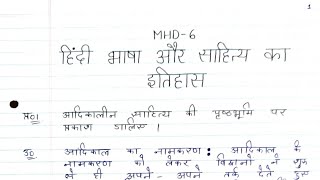 1
MHD-6
हिंदी भाषा और साहित्य का
इतिहास
प्र०1 आदिकालीन साहित्य की पृष्ठभूमि पर
प्रकाश डालिए।
उ० आदिकाल का नामकरण : आदिकाल के
नामकरण को लेकर विद्वानों ने शुरू
से ही अपने - अपने तर्क देते हुए